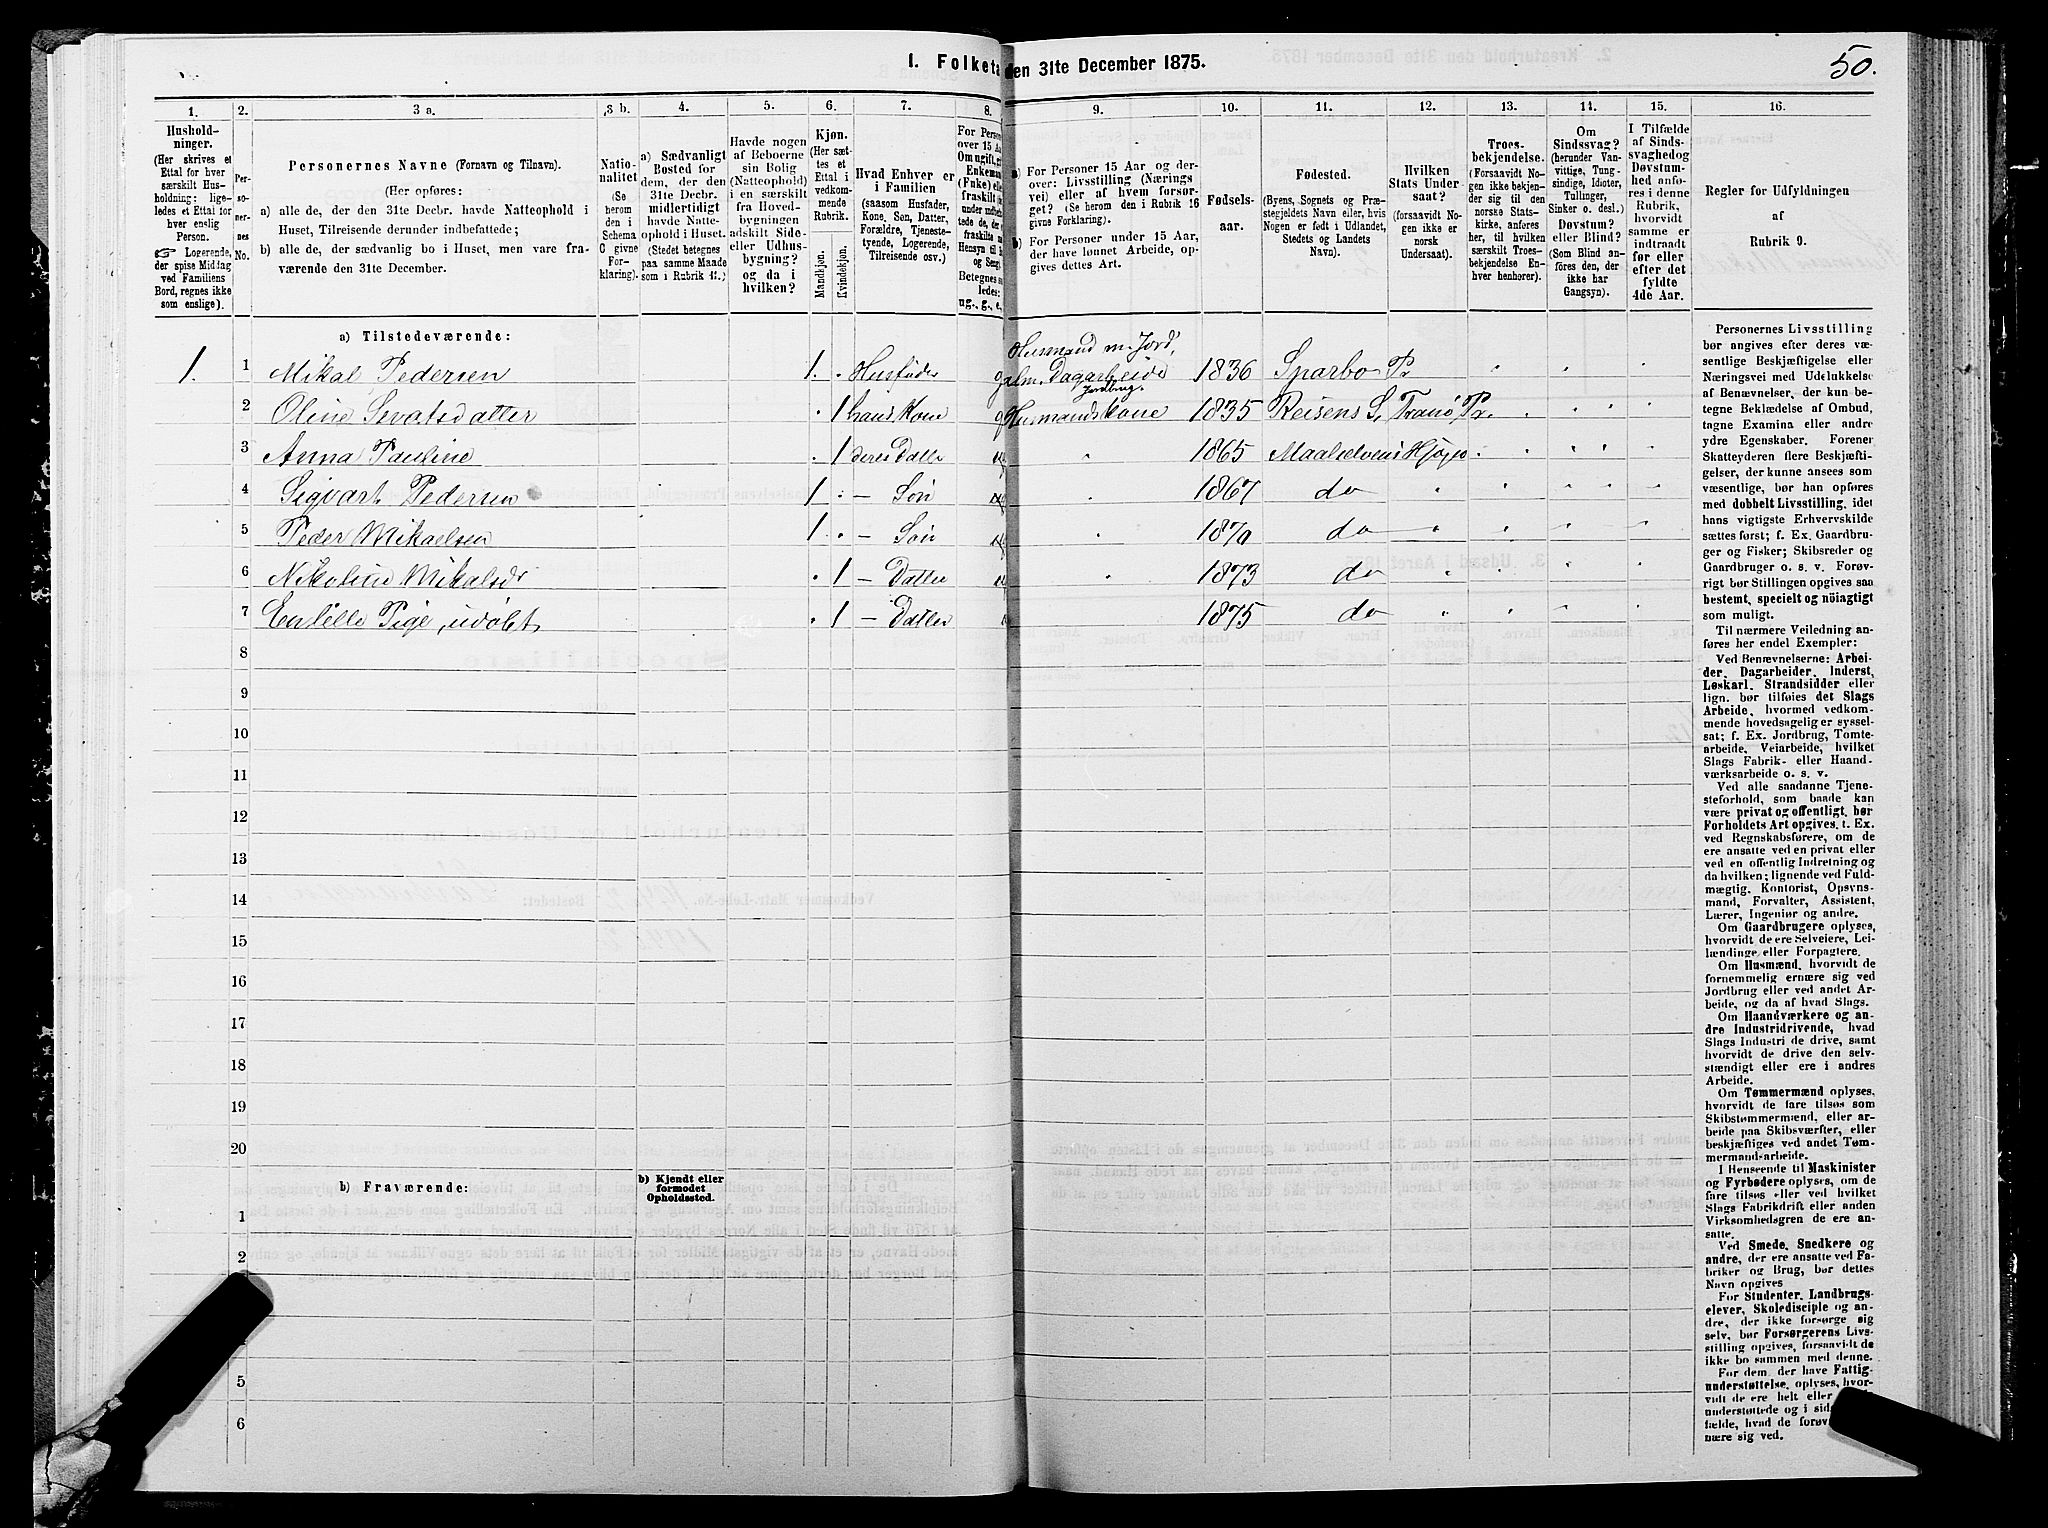 1. Folketa den 31te December 1875.
50.
1. 2. 3 a. 3 b. 4. 5. 6. 7. 8. 9. 10. 11. 12. 13. 14. 15. 16.
Hushold-
ninger.
(Her skrives et
Ettal for hver
særskilt Hus-
holdning; lige-
ledes et Ettal for
hver enslig
Person.
Logerende,
der spise Middag
ved Familiens
Bord, regnes ikke
som enslige.)
Per-
so-
ner-
nes
No.
Personernes Navne (Fornavn og Tilnavn).
(Her opføres:
a) alle de, der den 31te Decbr. havde Natteophold i
Huset, Tilreisende derunder indbefattede;
b) alle de, der sædvanlig bo i Huset, men vare fra-
værende den 31te December.
Natio-
nalitet
(Se
herom
den i
Schema
G givne
For-
klaring).
a) Sædvanligt
Bosted for
dem, der den
31te Decbr.
midlertidigt
havde Natte-
ophold i Huset.
(Stedet betegnes
paa samme Maade
som i Rubrik 11.)
Havde nogen
af Beboerne
sin Bolig
(Natteophold)
i en særskilt
fra Hoved-
bygningen
adskilt Side-
eller Udhus-
bygning?
og da i
hvilken?
Kjøn.
(Her sæt-
tes et
Ettal i
vedkom-
mende
Rubrik.
Mandkjøn.
Kvindekjøn.
Hvad Enhver er
i Familien
(saasom Husfader,
Kone, Søn, Datter,
Forældre, Tjeneste-
tyende, Logerende,
Tilreisende osv.)
For Perso
over 15 Aa
Om ugift, gi
Enkeman
(Enke) elle
fraskilt
Betegnes sa
ledes:
ug., g., e.,
a) For Personer 15 Aar og der-
over: Livsstilling (Nærings
vei) eller af hvem forsør-
get? (Se herom den i Rubrik 16
givne Forklaring).
b) For Personer under 15 Aar,
der have lønnet Arbeide, op-
gives dettes Art.
Fødsels-
aar.
Fødested.
(Byens, Sognets og Præ-
stegjeldets Navn eller, hvis
Nogen er født i Udlandet,
Stedets og Landets
Navn).
Hvilken
Stats Under-
saat?
(forsaavidt No-
gen ikke er
norsk
Undersaat).
Troes-
bekjendelse.
(Forsaavidt No-
gen ikke bekjen-
der sig til den
norske Stats-
kirke, anføres
her, til hvilken
særskilt Troes-
bekjendelse En-
hver henhører).
Om
Sindssvag?
(herunder Van-
vittige, Tung-
sindige, Idioter,
Tullinger,
Sinker o. desl.)
Døvstum?
eller Blind?
(Som Blind an-
føres den, der
ikke har
Gangsyn).
I Tilfælde
af Sinds-
svaghed og
Døvstum-
hed anfø-
res i denne
Rubrik,
hvorvidt
samme er
indtraadt
før eller
efter det
fyldte
4de Aar.
Regler for Udfyldningen
af
Rubrik 9.
a) Tilstedeværende:
Husmand m. Jord,
1. 1 Mikal Pedersen 1 Husfader g alm. Dagarbeide 1836 Sparbo Pr
Jordbrug.
2 Oline Sivatsdatter 1 hans Kone g Husmandskone 1835 Reisens S, Tranø Pr.
3 Anna Pauline 1 deres Datter 1865 Maalselvens
4 Sigvart Pedersen 1 — Søn 1867 do
5 Peder Mikaelsen 1 — Søn 1870 do
6 Nikoline Mikalsdr 1 — Datter 1873 do
7 En lille Pige, udøbt 1 — Datter 1875 do
8
9
10
11
12
13
14
15
16
17
18
19
20
b) Fraværende:
b) Kjendt eller
formodet
Opholdssted.
1
2
5
6
Personernes Livsstilling
bør angives efter deres væ-
sentlige Beskjæftigelse eller
Næringsvei med Udelukkelse
af Benævnelser, der kun be-
tegne Beklædelse af Ombud,
tagne Examina eller andre
ydre Egenskaber. Forener
Skatteyderen flere Beskjæfti-
gelser, der kunne ansees som
væsentlige, bør han opføres
med dobbelt Livsstilling, idet
hans vigtigste Erhvervskilde
sættes først; f. Ex. Gaardbru-
ger og Fisker; Skibsreder og
Gaardbruger o. s. v. Forøv-
rigt bør Stillingen opgives saa
bestemt, specielt og nöiagtigt
som muligt.
Til nærmere Veiledning an-
føres her endel Exempler:
Ved Benævnelserne: Arbei-
der, Dagarbeider, Inderst,
Løskarl, Strandsidder eller
lign. bør tilføies det Slags
Arbeide, hvormed vedkom-
mende hovedsagelig er syssel-
sat; f. Ex. Jordbrug, Tomte-
arbeide, Veiarbeide, hvilket
Slags Fabrik- eller Haand-
værksarbeide o. s. v.
Ved alle saadanne Tjene-
steforhold, som baade kan
være privat og offentligt, bør
Forholdets Art opgives, t. Ex.
ved Regnskabsførere, om de
ere ansatte ved en privat eller
ved en offentlig Indretning og
da hvilken; lignende ved Fuld-
mægtig, Kontorist, Opsyns-
mand, Forvalter, Assistent,
Lærer, Ingeniør og andre.
Om Gaardbrugere oplyses,
hvorvidt de ere Selveiere, Lei-
lændinge eller Forpagtere.
Om Husmænd, hvorvidt de
fornemmelig ernære sig ved
Jordbrug eller ved andet Ar-
beide, og da af hvad Slags.
Om Haandværkere og an-
dre Industridrivende, hvad
Slags Industri de drive, samt
hvorvidt de drive den selv-
stændigt eller ere i andres
Arbeide.
Om Tømmermænd oplyses,
hvorvidt de fare tilsøs som
Skibstømmermænd, eller ar-
beide paa Skibsværfter, eller
beskjæftiges ved andet Tøm-
mermandsarbeide.
I Henseende til Maskinister
og Fyrbødere oplyses, om de
fare tilsøs eller ved hvilket
Slags Fabrikdrift eller anden
Virksomhedsgren de ere an-
satte.
Ved Smede, Snedkere og
andre, der ere ansatte ved Fa-
briker og Brug, bør dettes
Navn opgives
For Studenter, Landbrugs-
elever, Skoledisciple og an-
dre, der ikke forsørge sig
selv, bør Forsørgerens Livs-
stilling opgives, forsaavidt de
ikke bo sammen med denne.
For dem, der have Fattig-
understøttelse, oplyses, hvor-
vidt de ere helt eller
understøttede og i
fælde, hvad de
nære sig ved.